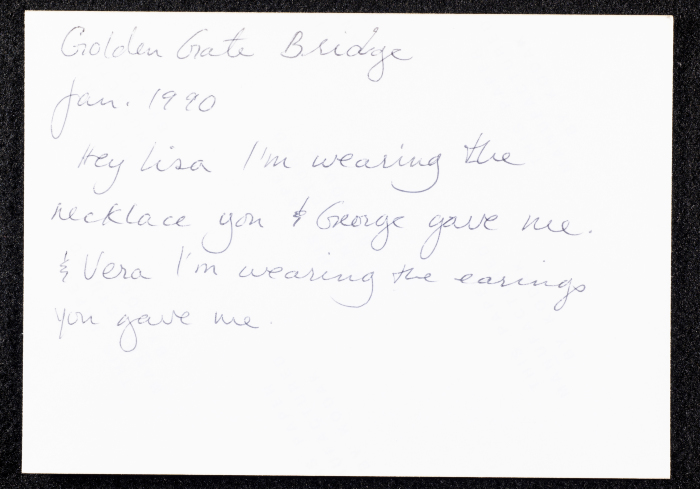 Golden Gate Bridge
Jan. 1990
Hey Lisa I'm wearing the
necklace you & George gave me.
& Vera I'm wearing the earings
you gave me.